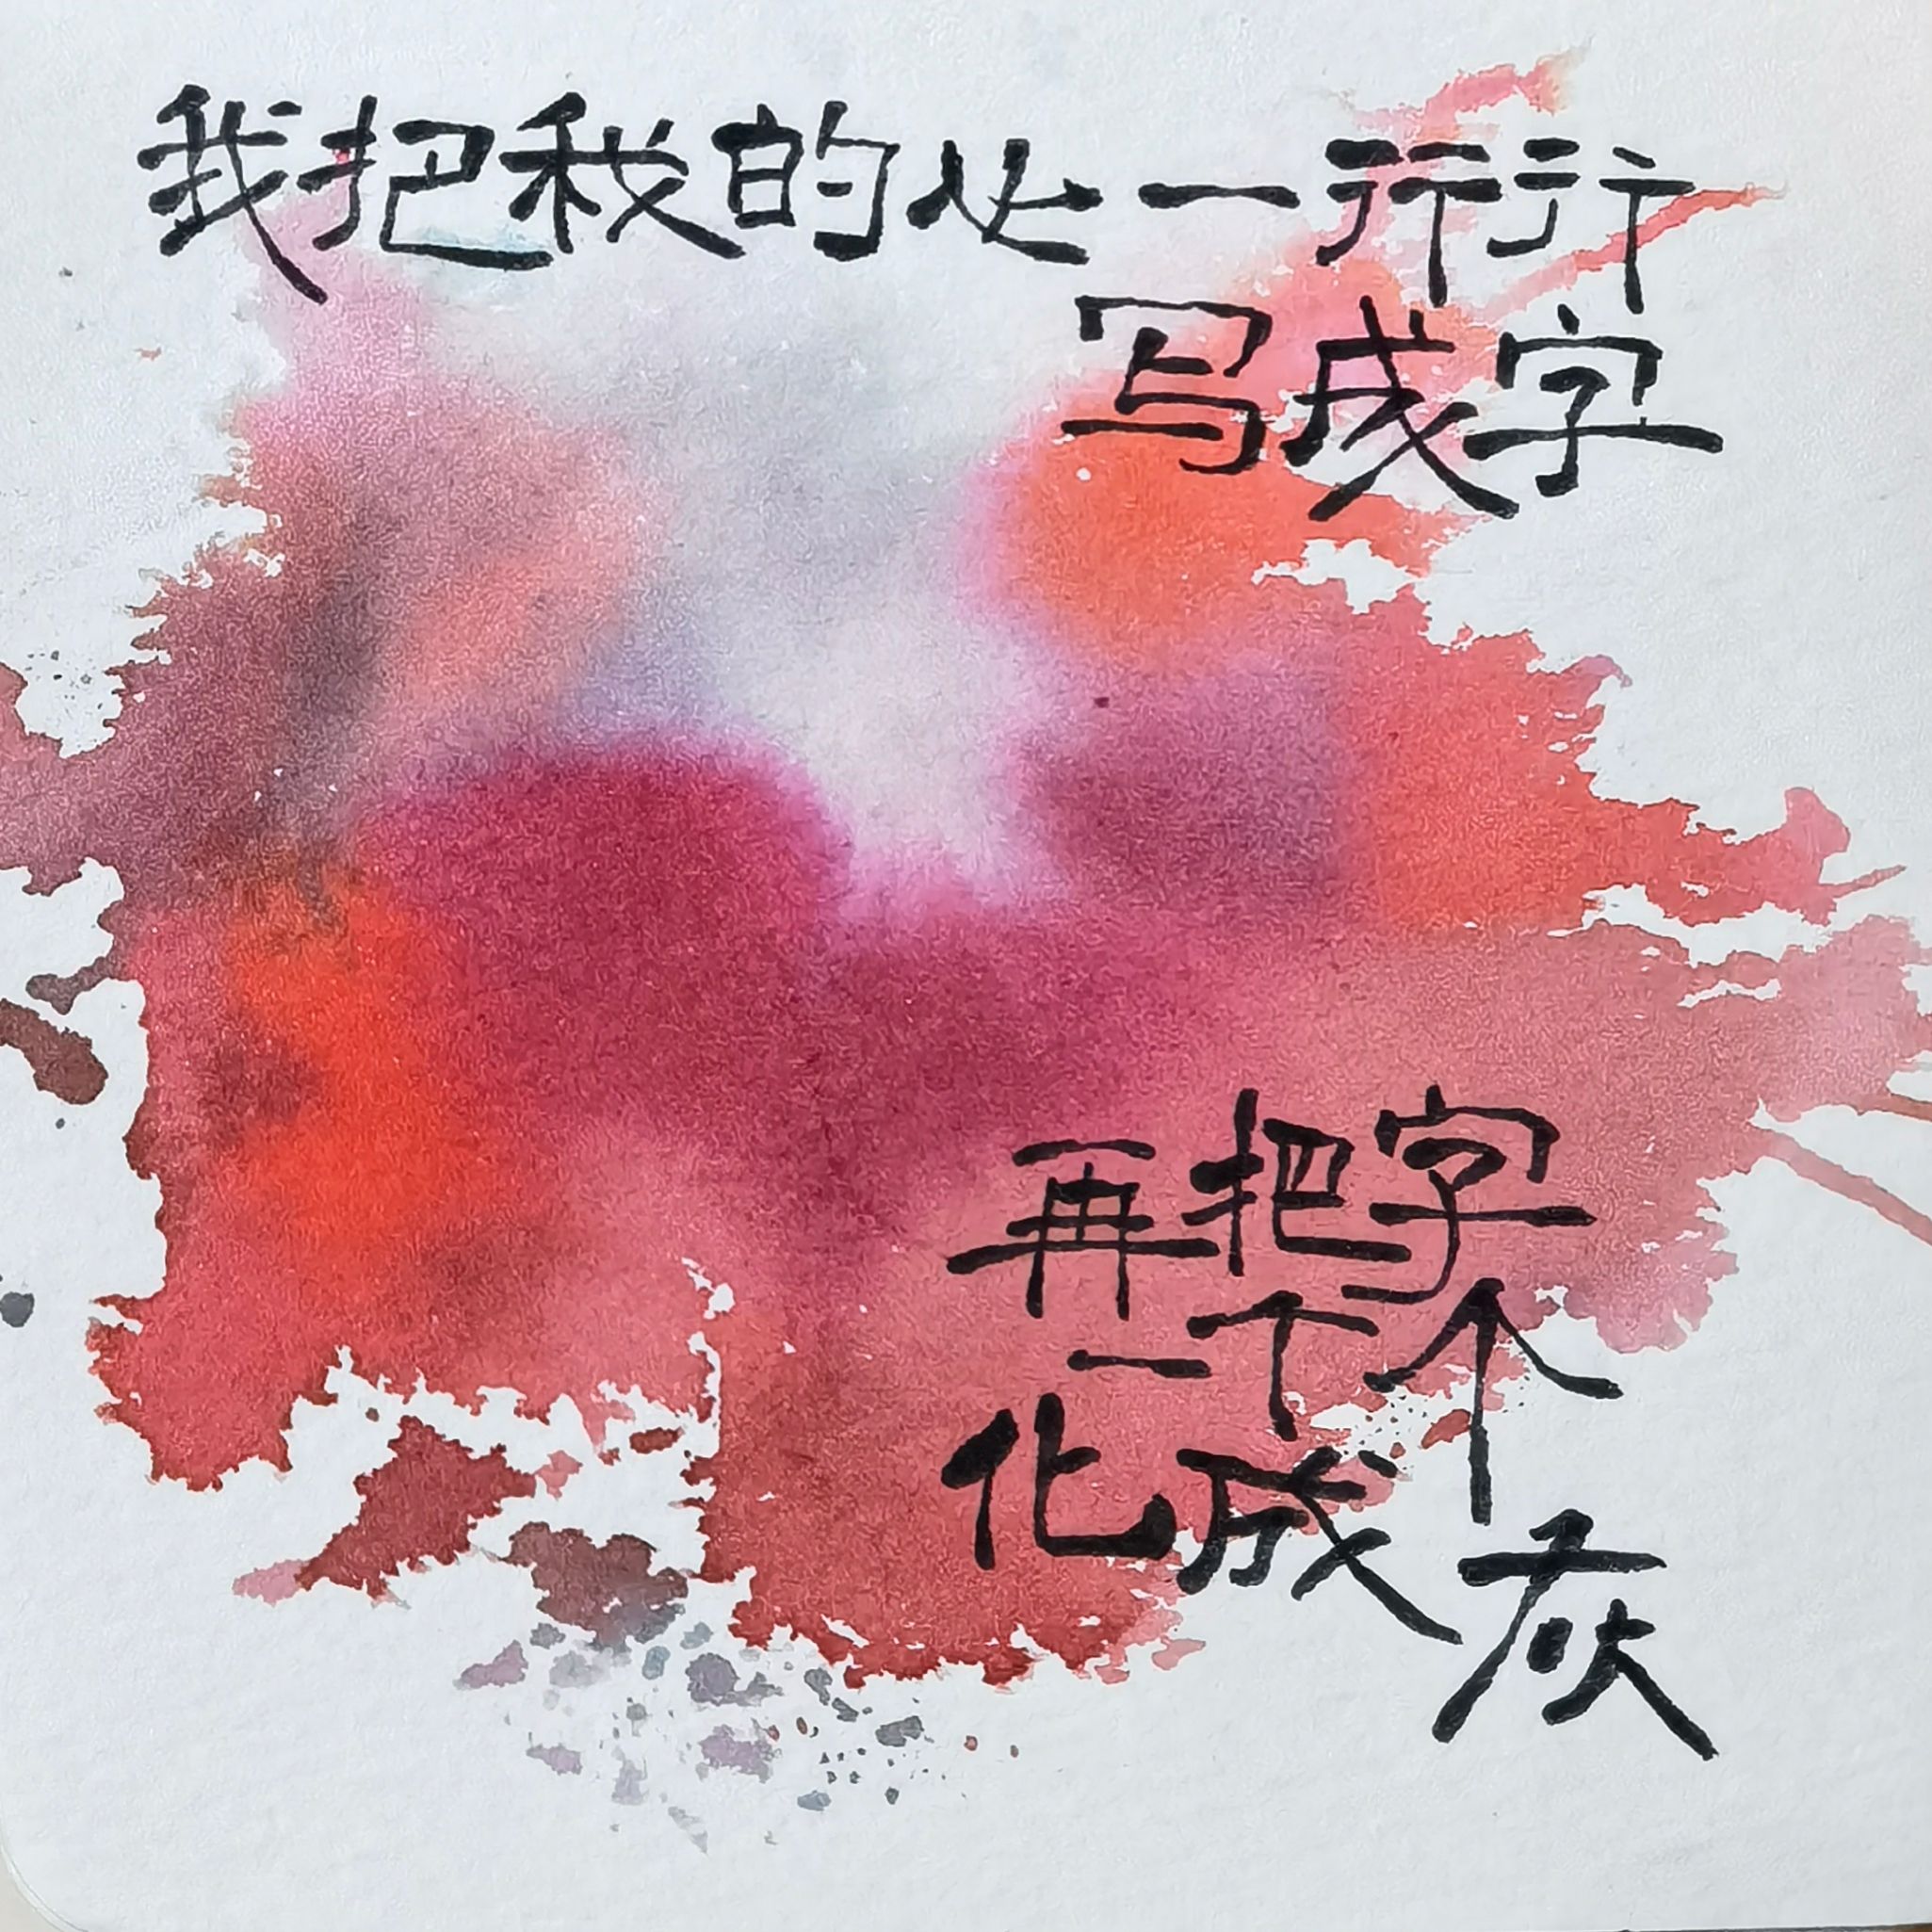 我把我的心一行行
写成字
再把字
一个个
化成灰